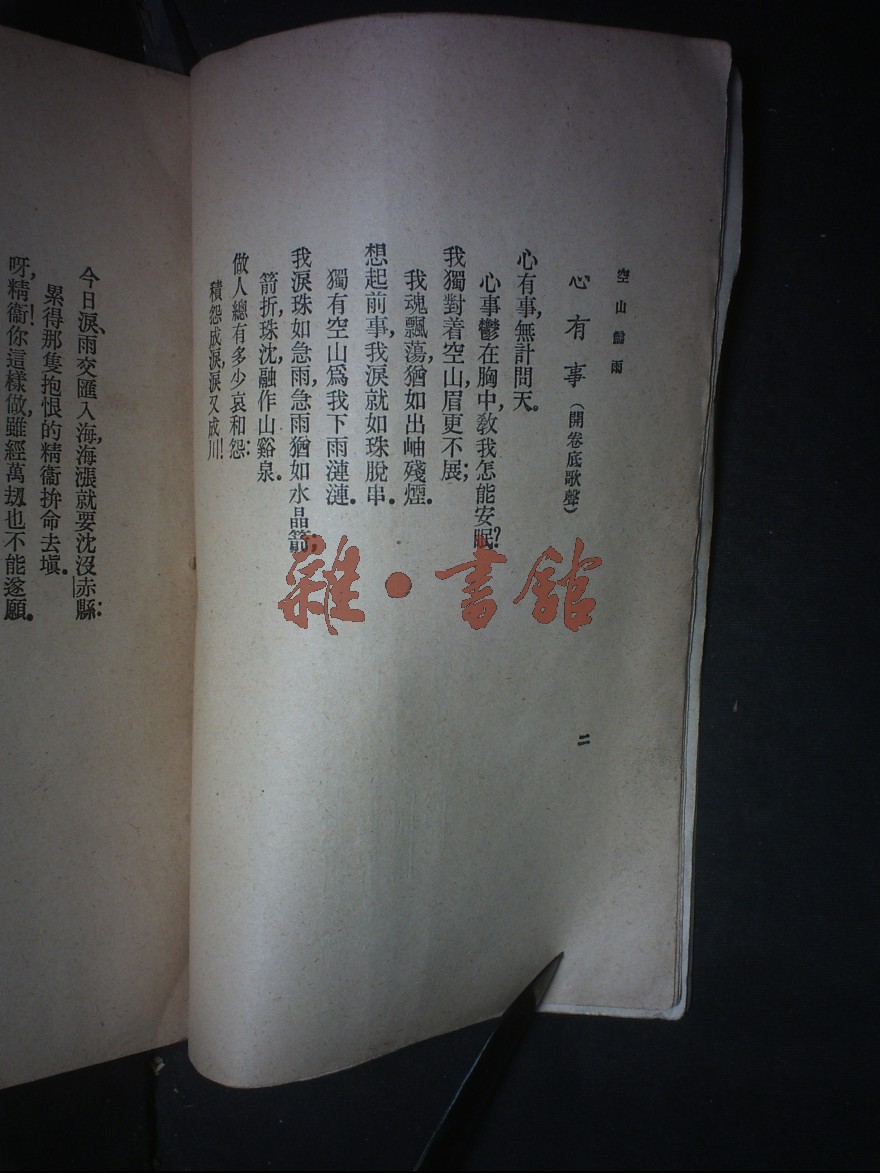 空山靈雨
心有事（開卷底歌聲）
心有事，無計問天。
心事鬱在胸中，敎我怎能安眠？
我獨對着空山，眉更不展；
我魂飄蕩，猶如出岫殘煙。
想起前事，我淚就如珠脫串。
獨有空山爲我下雨漣漣。
我淚珠如急雨，急雨猶如水晶箭；
箭折，珠沈，融作山谿泉。
做人總有多少哀和怨：
積怨成淚，淚又成川！
二
今日淚、雨交匯入海，海漲就要沈沒赤縣：
累得那隻抱恨的精衞拚命去塡。
呀，精衞！你這樣做，雖經萬劫也不能遂願。
雜·書館